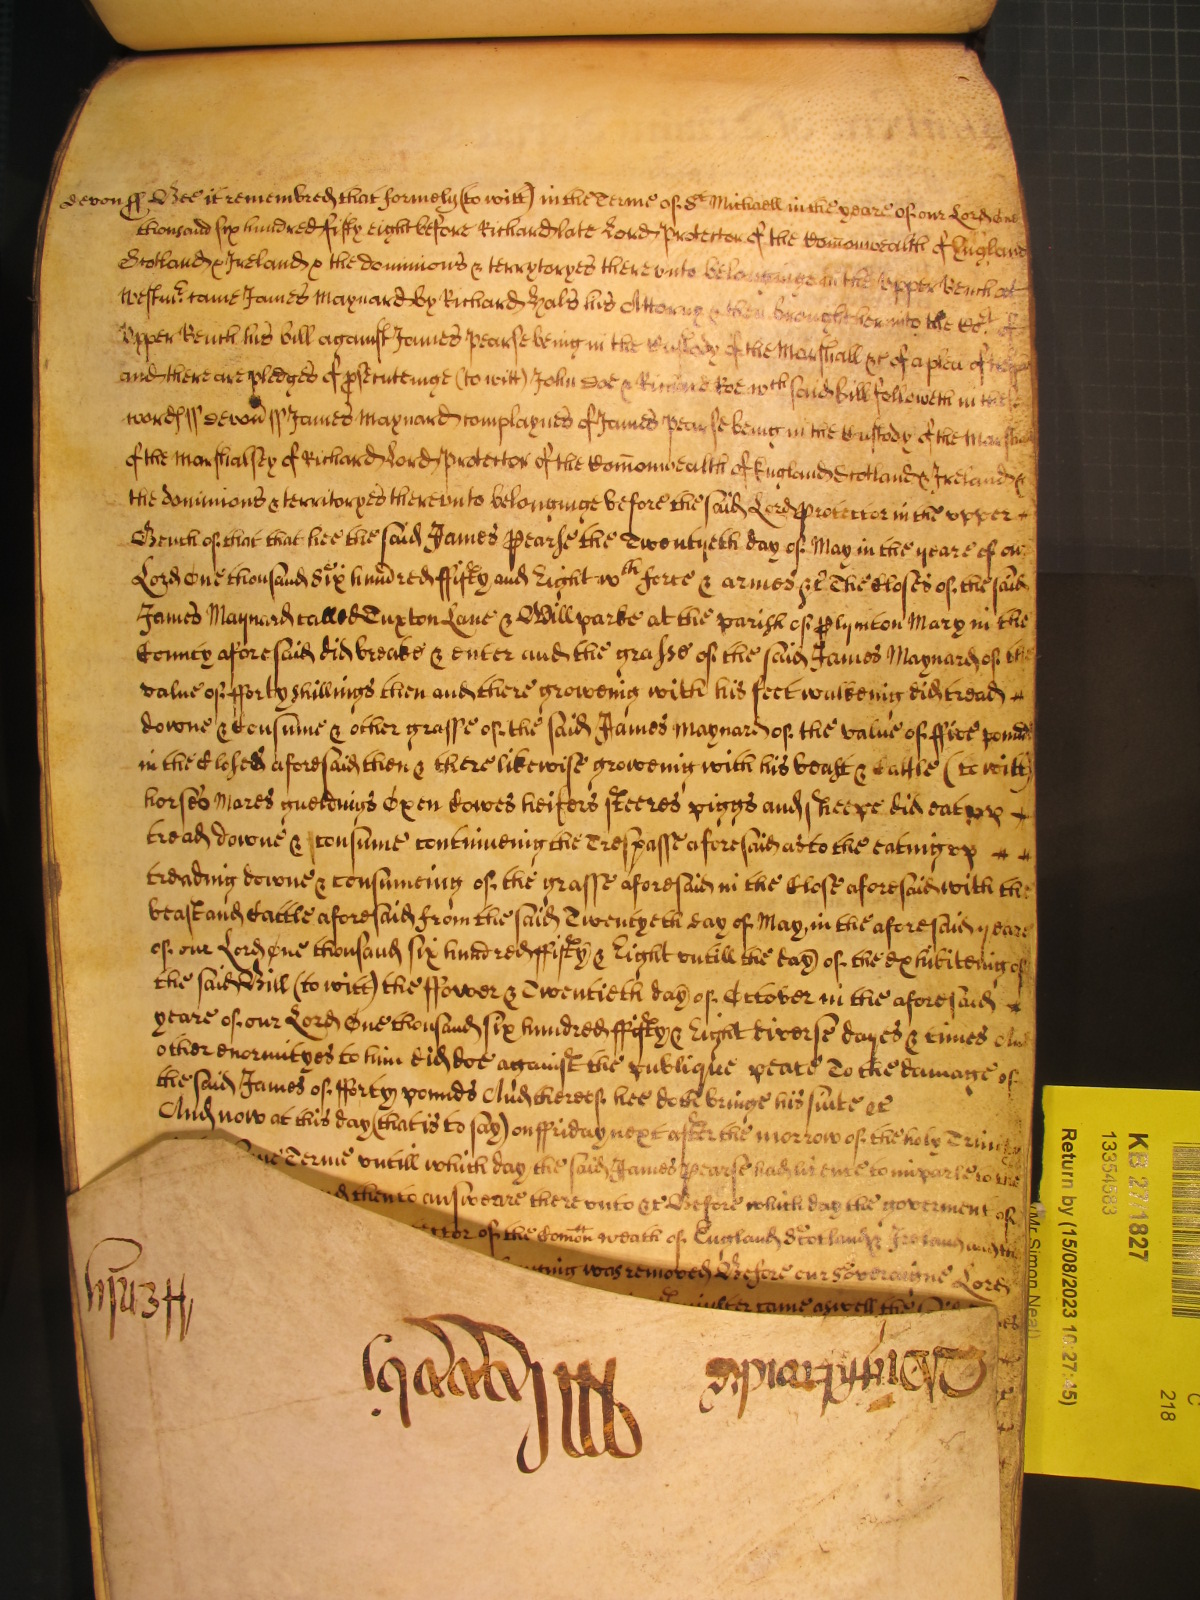 Devon ss Bee it remembred that formerly (to witt) in the Terme of St Michaell in the yeare of our Lord One
thousand six hundred fifty eight before Richard late Lord Protector of the Comonwealth of England
Scotland & Ireland & the dominions & terrytoryes there vnto belonginge in the Vpper Bench att
Westmr. came James Maynard by Richard Hals his Attorny & then brought here into the Cot of
Vpper Bench his bill against James Pearse being in the Custody of the Marshall &c of a plea of trespas
and there are pledges of psecuteinge (to witt) John Doe & Richard Roe wch said bill followeth in these
words ss Devon ss James Maynard complaynes of James Pearse being in the Custody of the Marshall
of the Marshalsey of Richard Lord Protector of the Comonwealth of England Scotland & Ireland &
the dominions & territoryes therevnto belonginge before the said Lord Protector in the vpper
Bench of that that hee the said James Pearse the Twentyeth day of May in the yeare of our
Lord One thousand Six hundred ffifty and Eight wth force & armes &c The Closes of the said
James Maynard called Tuxton Lane & Will parke at the parish of Plymton Mary in the
County aforesaid did breake & enter and the grasse of the said James Maynard of the
value of fforty shillings then and there groweing with his feet walkeing did tread
downe & consume & other grasse of the said James Maynard of the value of ffive pounds
in the Closes aforesaid then & there likewise groweing with his beast & Cattle (to witt)
horses Mares gueldings Oxen Cowes heifers steeres piggs and sheepe did eat vp
tread downe & consume continueing the Trespasse aforesaid as to the eating vp
treading downe & consumeing of the grasse aforesaid in the Close aforesaid with the
beast and Cattle aforesaid from the said Twentyeth day of May in the aforesaid yeare
of our Lord One thousand six hundred ffifty & Eight vntill the day of the exhibiteing of
the said Bill (to witt) the ffower & Twentieth day of October in the aforesaid
yeare of our Lord One thousand six hundred ffifty & Eight diverse dayes & times And
other enormityes to him did doe against the publique peace To the damage of
the said James of fforty pounds And thereof hee doth bringe his suite &c
And now at this day (that is to say) on ffriday next after the morrow of the holy Trinity
Terme vntill which day the said James Pearse had licence to imparle to the
and then to answeare there vnto &c Before which day the goverment of
of the Comon wealth of England Scotland & Ireland
was removed Before our Soveraigne Lord
came aswell the
KB 27/1827
13354583
Return by (15/08/2023 10:27:45)
(Mr Simon Neal)
C
218